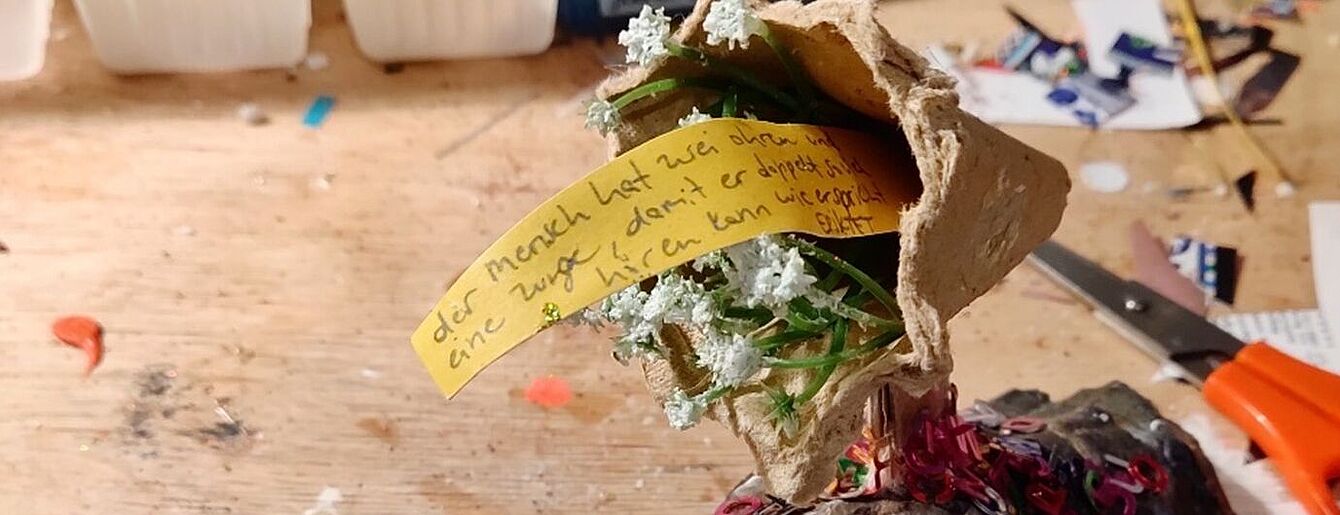 der mensch hat zwei ohren und
eine zunge, damit er doppelt so viel
hören kann wie er spricht
EPIKTET